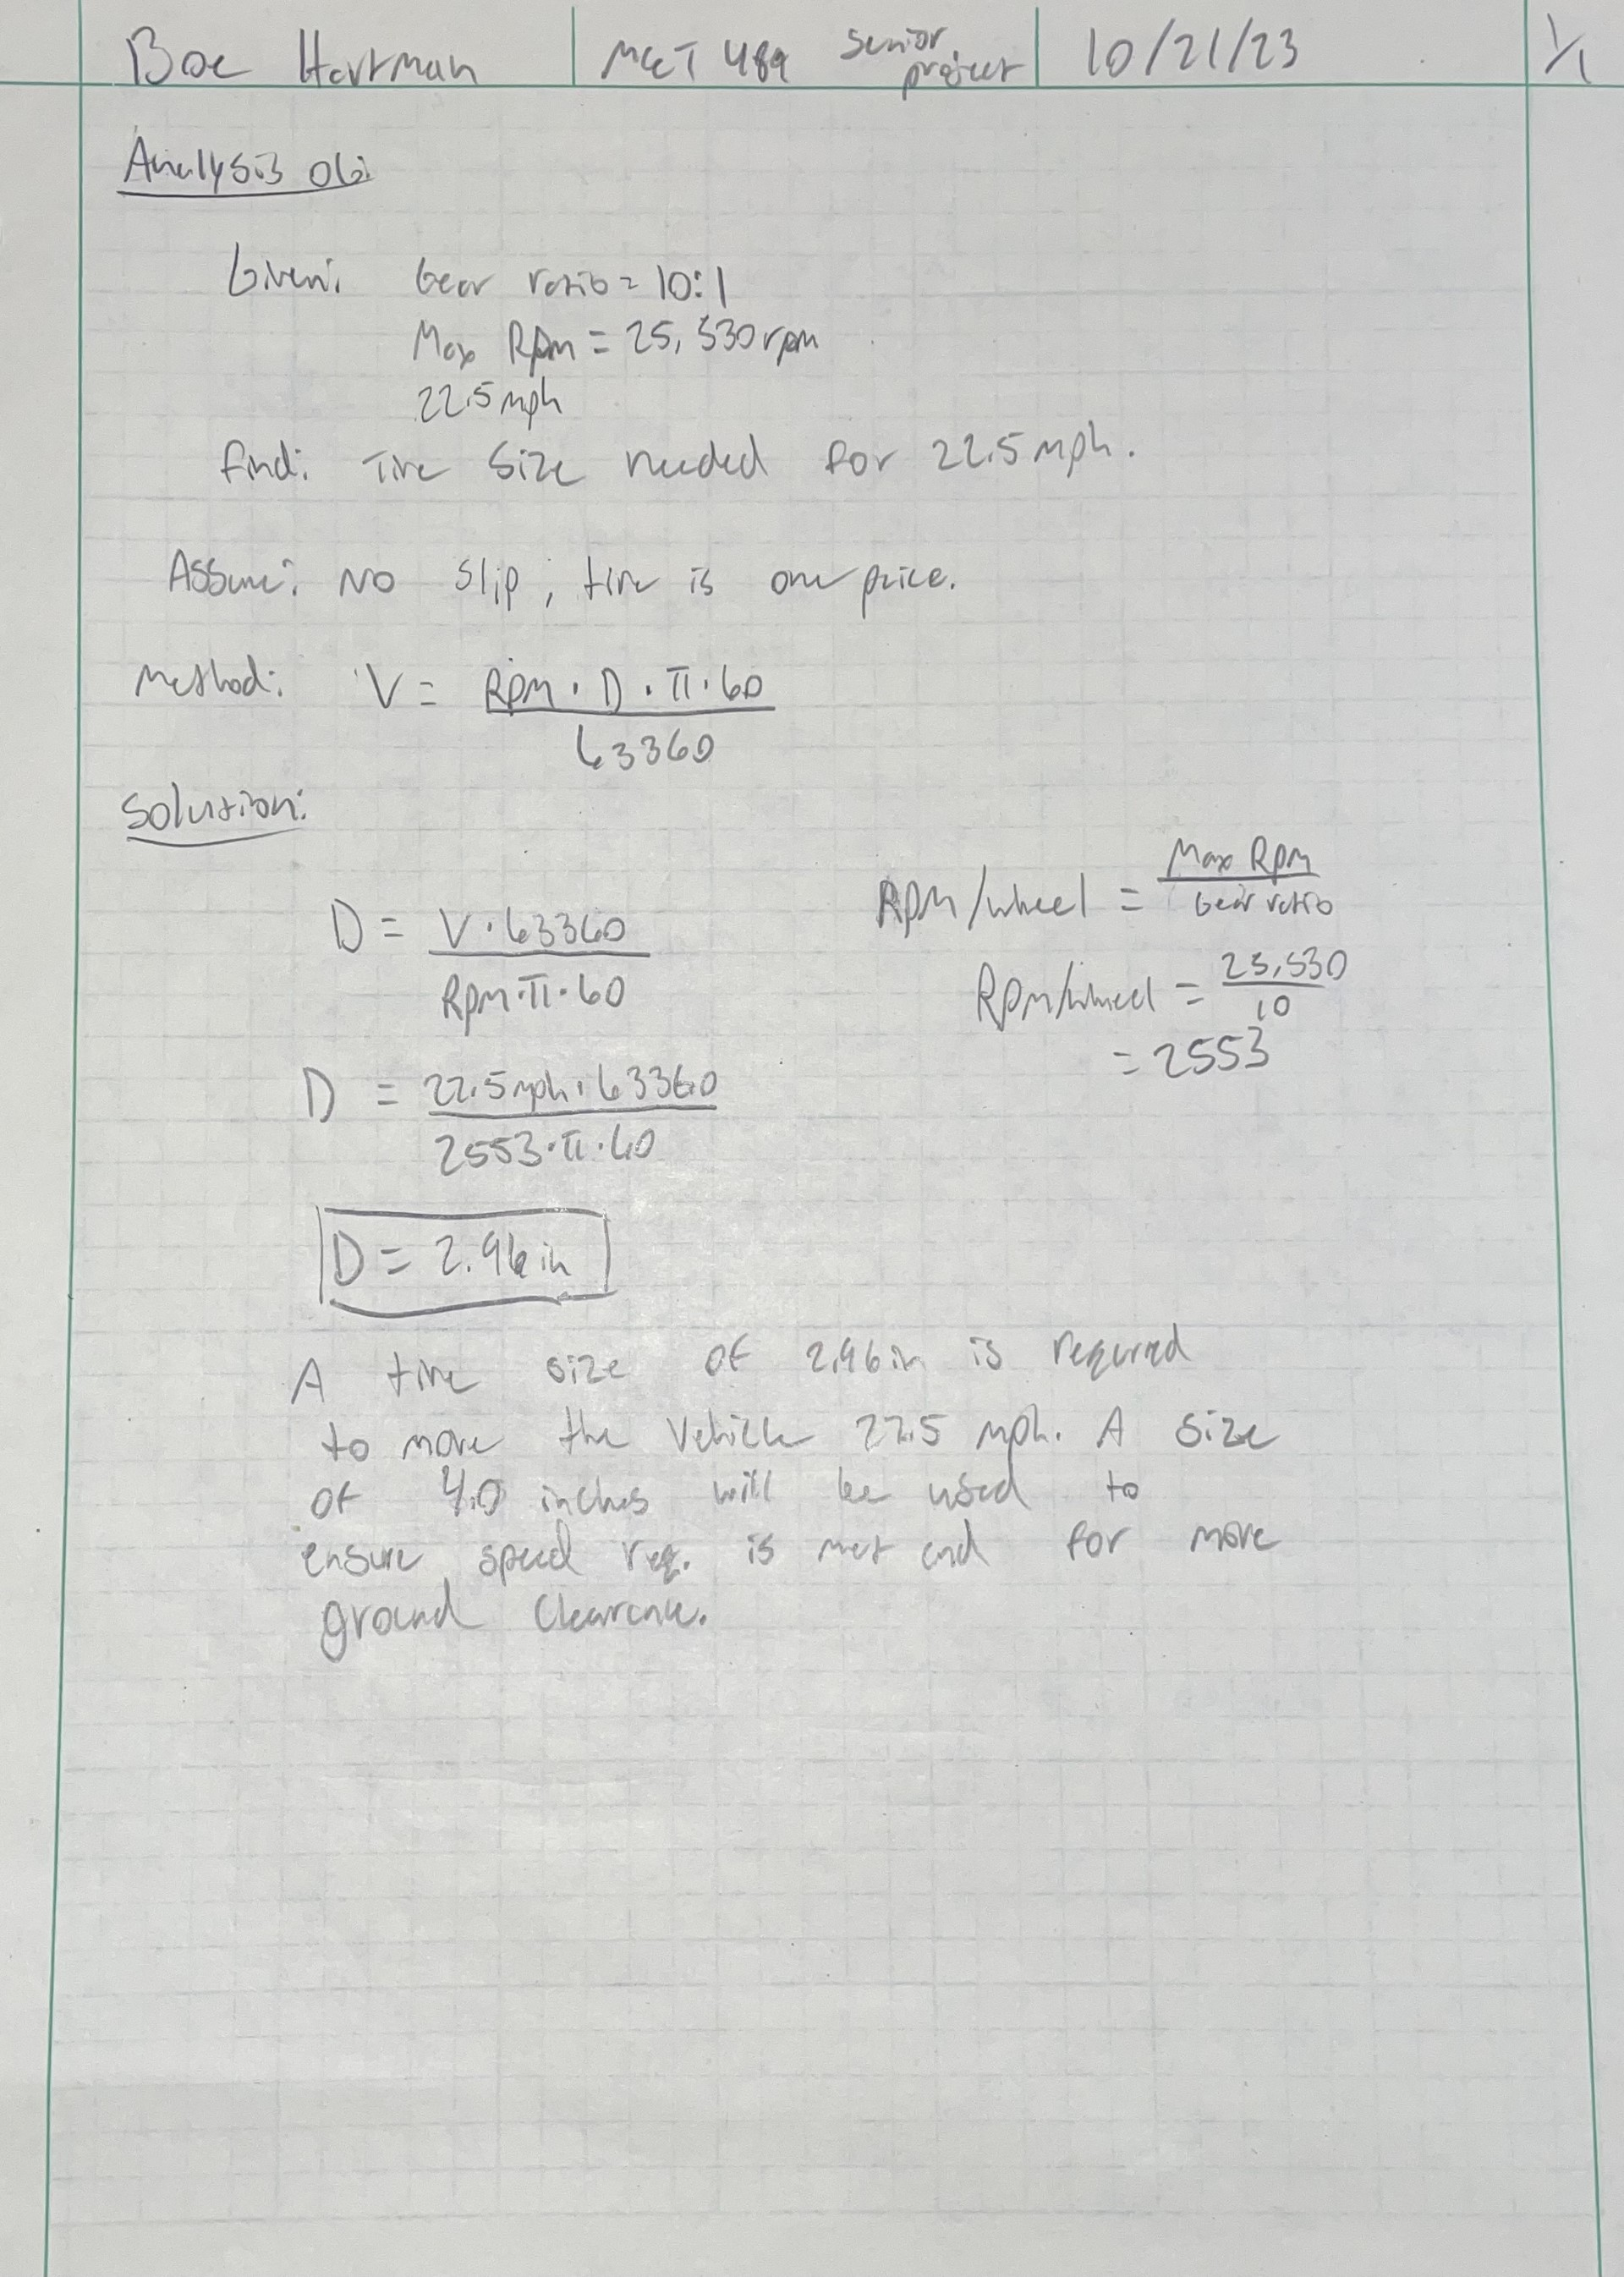 Boe Hartman | MET 489 Senior project | 10/21/23 | 1/1
Analysis 06:
Given: Gear ratio = 10:1
Max RPM = 25,530 rpm
22.5 mph
Find: Tire size needed for 22.5 mph.
Assume: No slip, tire is one peice.
Method: V = RPM · D · π · 60 / 63360
Solution:
D = V · 63360 / RPM · π · 60
RPM/wheel = Max RPM / Gear ratio
RPM/wheel = 25,530 / 10
= 2553
D = 22.5 mph · 63360 / 2553 · π · 60
D = 2.96 in
A tire size of 2.96 in is required
to move the vehicle 22.5 mph. A size
of 4.0 inches will be used to
ensure speed req. is met and for more
ground clearance.